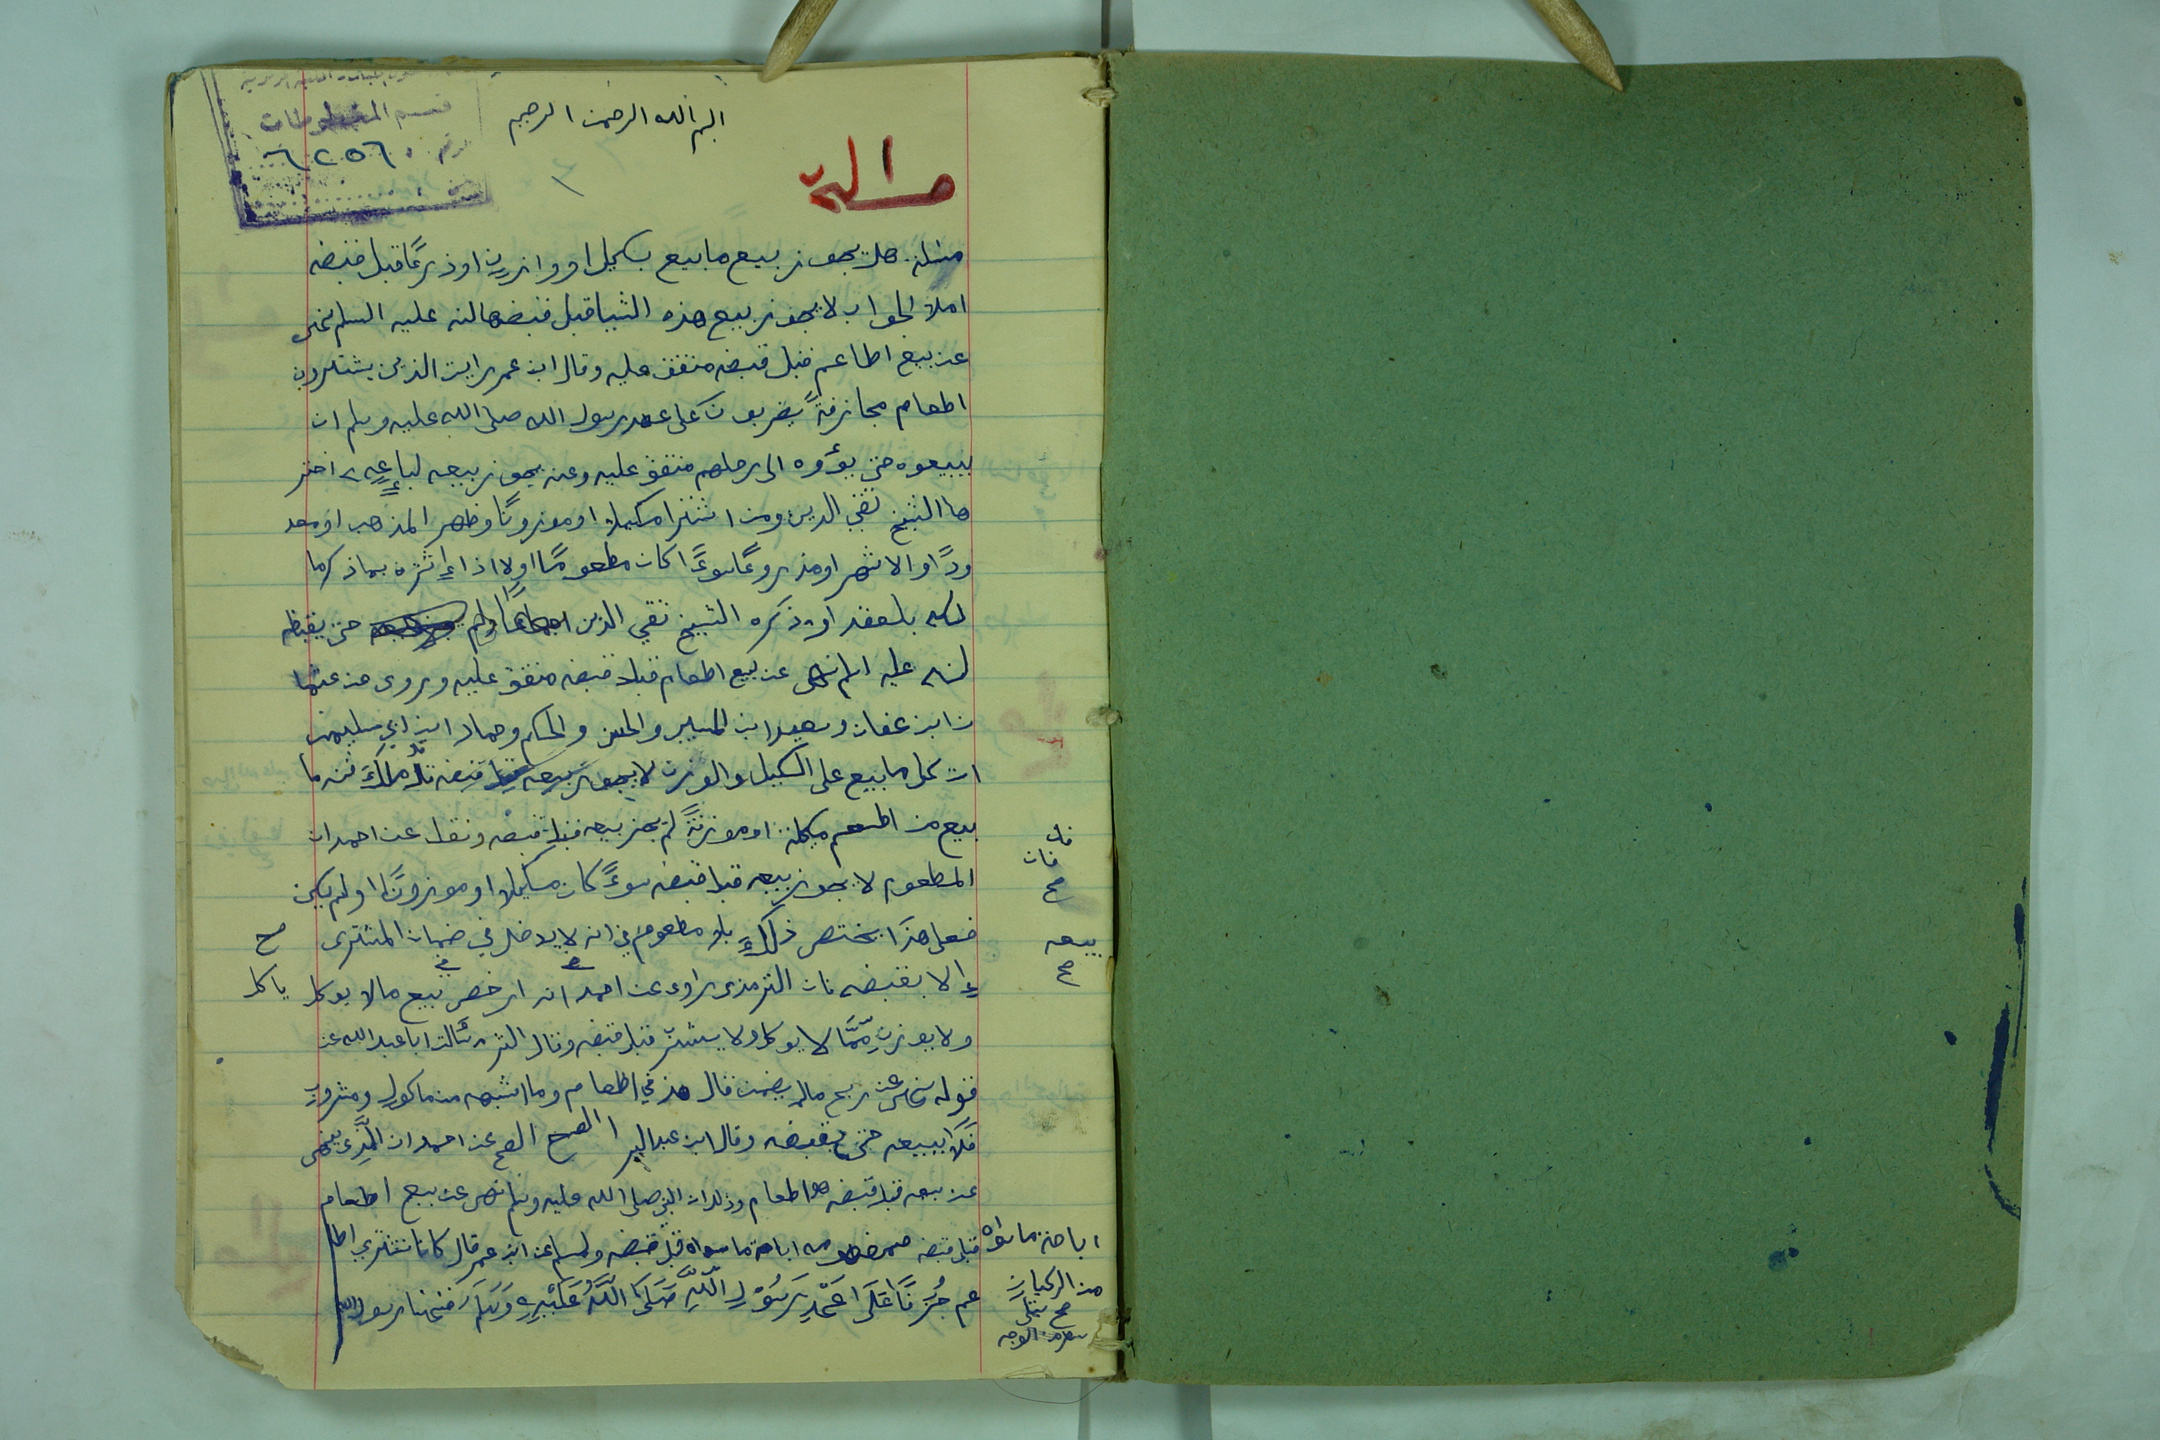 قسم المخطوطات
رقم ٦٢٥٦
البم الله الرحمن الرحيم
١
مسالة
مسئلة هل يجوز بيع ما بيع بكيل او وازرين او ذرعًا قبل قبضه
املا الجواب لا يجوز بيع هذه الشيا قبل قبضها لنه عليه السلم نهى
عن بيع اطاعم قبل قبضه متفق عليه وقال ابن عمر رايت الذين يشترون
اطعام مجازفةً يضربون على عهد رسول الله صلى الله عليه وسلم ان
يبيعوه حتى يؤوه الى رحلهم متفق عليه وعنه يجوز بيعه لباءعه اختر
ها الشيخ تقي الدين ومن اشترا مكيلا او موزونًا وظهر المذهب او معد
ودًا والاشهر او مذروعًا سوءًا كان مطعومًا اولا اذا اشتره بما ذكر ما
لكه بلعقد او ذكره الشيخ تقي الدين اجماعًا ولم حتى يقبظه
لنه عليه السلم نهى عن بيع اطعام قبل قبضه متفق عليه وروى عن عثما
ن ابن عفان وسعيد ابن المسيب والحسن والحكم وحماد ابن ابي سليمن
ان كل ما بيع على الكيل والوزن لا يجوز بيعه قبل قبضه
بيع من المطعم مكيلة او موزنةً لم يجز بيعه قبل قبضه ونقل عن احمد ان
المطعوم لا يجوز بيعه قبل قبضه سوءً كان مكيلا او موزونًا او لم يكن
فعلى هذا يختص ذلك بلمطعوم في انه لا يدخل في ضمان المشترى
الا بقبضه فان الترمذى راوى عن احمد انه ارخص في بيع مالا يوكل
ولا يوزن مّمّا لا يوكل ولا يشترب قبل قبضه وقال الثرم سألت ابا عبد الله عن
قوله نهى عن ربح مالم يضمن قال هذ في اطعام وما اشبهه من ماكولٍ ومشروبٍ
فَلا يبيعه حتى يقبضه وقال ابن عبد البر الاصح عن احمد ان الّذى ينهى
عن بيعه قبل قبضه هوا طعام وذلك ان النبي صلى الله عليه وسلم نهى عن بيع اطعام
قبل قبضه اباحة ما سواه قبل قبضه ولمسلم عن ابن عمر قال كانا نشتري اطا
عم جُزفًا عَلَى اعَهْدِ رَسُوْلِ اللّهِ صَلَى اللّهُ عَلَيْهِ وَسَلَمَ فنهانا رسول الله
قال
فان
صح
بيعه
صح
صح
ياكل
اباحة ما سواه
من الركبان
صح